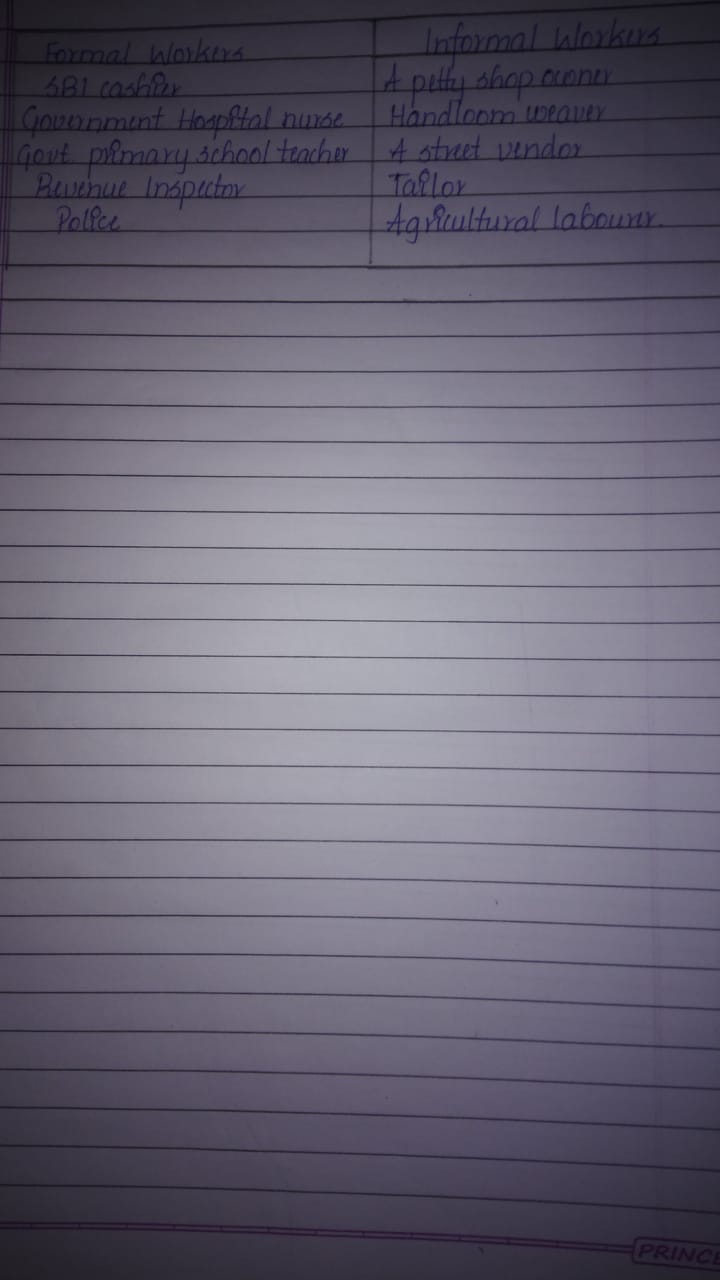 Formal Workers Informal Workers
SBI cashier A petty shop owner
Government Hospital nurse Handloom weaver
Govt primary school teacher A street vendor
Revenue Inspector Tailor
Police Agricultural labourer.
PRINCE